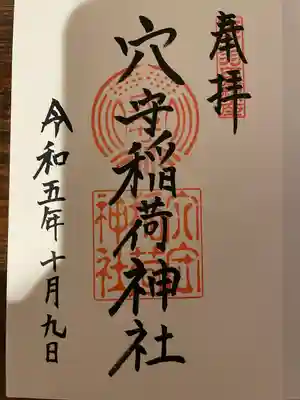 奉拝
穴守稲荷神社
令和五年十月九日